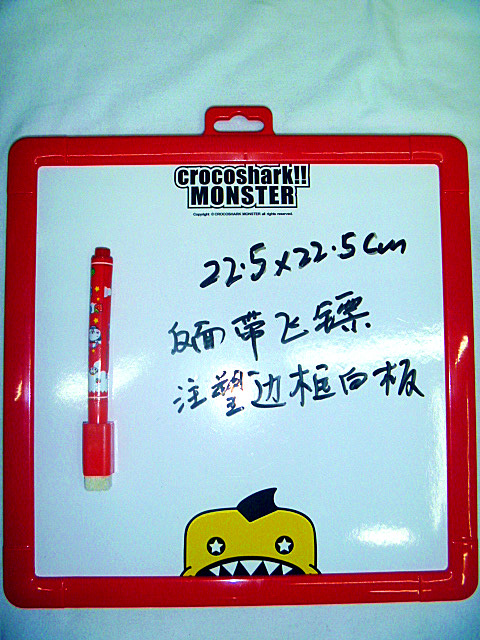 crocoshark!!
MONSTER
Copyright © CROCOSHARK MONSTER all rights reserved.
22.5x22.5cm
反面带飞镖
注塑边框白板